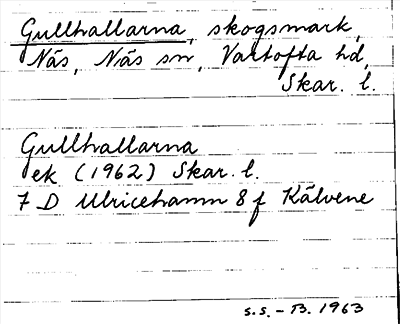 Gullhallarna, skogsmark,
Näs, Näs sn, Vartofta hd,
Skar. l.
Gullhallarna
ek (1962) Skar. l.
7 D Ulricehamn 8 f Kälvene
S.S. - B. 1963